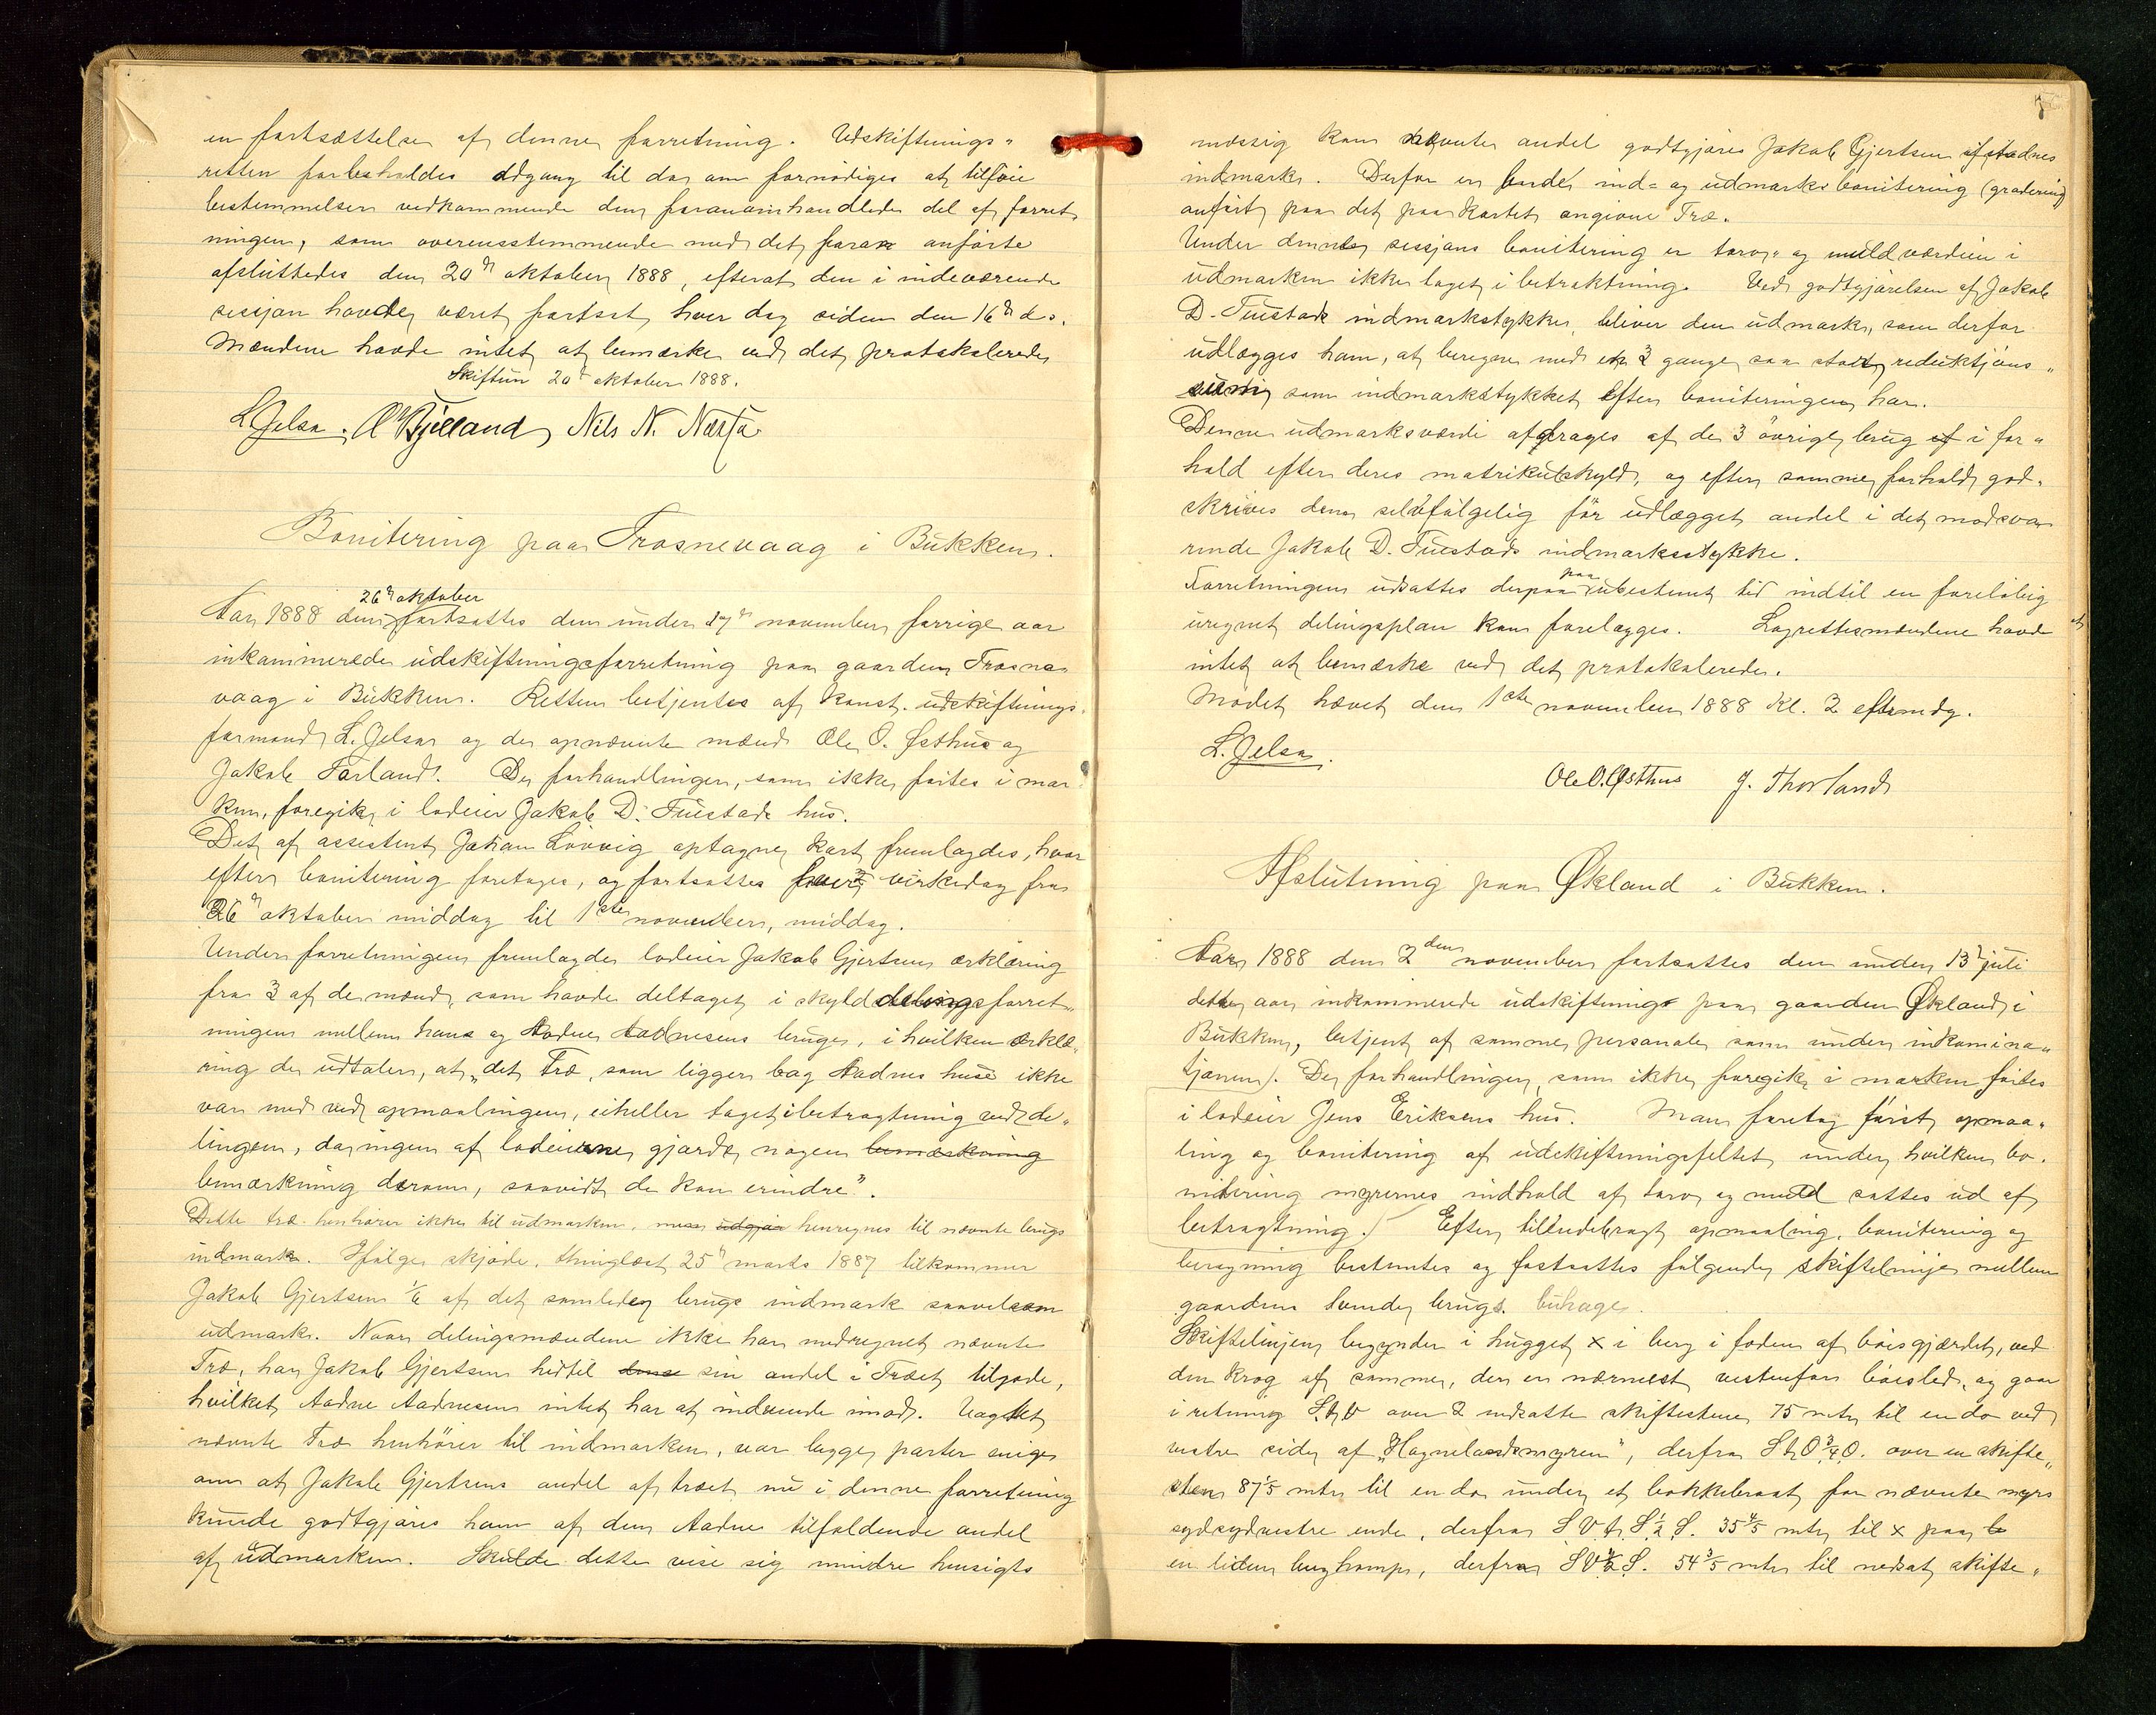 en fortsættelse af denne forretning. Udskiftnings-
retten forbeholdes adgang til da om fornødiges at tilføie
bestemmelser vedkommende den foranomhandlede del af forret-
ningen, som overensstemmende med det foran anførte
afsluttedes den 20de oktober 1888, efterat den i indeværende
sessjon havde været fortsat hver dag siden den 16de ds.
Mændene havde intet at bemærke ved det protokolerede,
Skiftun 20de oktober 1888.
L. Jelsa. O Bjelland, Nils N. Nærtu
Bonitering paa Trosnevaag i Bukken.
26de oktober
Aar 1888 den fortsattes den under 17de november forrige aar
inkaminerede udskiftningsforretning paa gaarden Trosne-
vaag i Bukken. Retten betjentes af konst. udskiftnings-
formand L. Jelsa og de opnævnte mænd Ole O. Østhus og
Jakob Tørland. De forhandlinger, som ikke førtes i mar-
ken, foregik i lodeier Jakob D. Tuestads hus.
Det af assistent Johan Løvvig optagne kart fremlagdes, hvor
efter bonitering foretoges, og fortsattes hver virkedag fra
26de oktober middag til 1ste november, middag.
Under forretningen fremlagdes lodeier Jakob Gjertsens erklæring
fra 3 af de mænd, som havde deltaget i skylddelingsforret-
ningen mellem hans og Aadne Aadnesens bruge, i hvilken erklæ-
ring de udtaler, at "det Træ, som ligger bag Aadnes huse ikke
var med ved opmaalingen, eiheller taget i betragtning ved de-
lingen, da ingen af lodeierne gjorde nogen bemærkning
bemærkning derom, saavidt de kan erindre".
Dette træ henhører ikke til udmarken, men udgjør henregnes til nævnte brugs
indmark. Ifølge skjøde, thinglæst 25de marts 1887 tilkommer
Jakob Gjertsen 1/6 af det samlede brugs indmark saavelsom
udmark. Naar delingsmændene ikke har medregnet nævnte
Træ, har Jakob Gjertsen hidtil sin andel i Træet tilgode,
hvilket Aadne Aadnesen intet har at indvende imod. Uagtet
nævnte Træ henhører til indmarken, var begge parter enige
om at Jakob Gjertsens andel af træet nu i denne forretning
kunde godtgjøres ham af den Aadne tilfaldende andel
af udmarken. Skulde dette vise sig mindre hensigts
mæssig kan nævnte andel godtgjøres Jakob Gjertsen af Aadnes
indmark. Derfor er baade ind- og udmarks bonitering (gradering)
anført paa det paa kartet angivne Træ.
Under denne sessjons bonitering er torv- og muldværdien i
udmarken ikke taget i betraktning. Ved godtgjørelsen af Jakob
D. Tuestads indmarkstykke, bliver den udmark, som derfor
udlægges ham, at beregne med en 3 gange saa stor reduktjons-
værdi som indmarkstykket efter boniteringen har.
Denne udmarksværdi afdrages af de 3 øvrige brug i for-
hold efter deres matrikulskyld, og efter samme forhold god-
skrives denne selvfølgelig før udlægget andel i det modsva-
rende Jakob D. Tuestads indmarksstykke.
paa
Forretningen udsattes derpaa ubestemt tid indtil en foreløbig
uregnet delingsplan kan forelægges. Lagrettesmændene havde
intet at bemærke ved det protokolerede.
Mødet hævet den 1ste november 1888 Kl. 2 eftermdg.
L. Jelsa.
Ole O. Østhus J. Thorland
Afslutning paa Økland i Bukken.
Aar 1888 den 2den november fortsattes den under 13de juli
dette aar inkaminerede udskiftning paa gaarden Økland i
Bukken, betjent af samme personale som under inkamina-
tjonen. De forhandlinger, som ikke foregik i marken førtes
i lodeier Jens Eriksens hus. Man foretog først opmaa-
ling og bonitering af udskiftningsfeltet, under hvilken bo-
nitering myrernes indhold af torv og muld sattes ud af
betragtning. Efter tilendebragt opmaaling, bonitering og
beregning bestemtes og fastsattes følgende skiftelinje mellem
gaardens tvende brugs. buhage.
Skiftelinjen begynder i hugget x i berg i foden af bøisgjærdet, ved
den krog af samme, der er nærmest vestenfor bøisled, og gaar
i retning S.t.V over 2 nedsatte skiftestene 75 mtr. til en do ved
vestre side af "Hagnelandsmyren", derfra S t O 3/4 O. over en skifte-
sten 87 1/5 mtr. til en do under et bakkebraat for nævnte myrs
sydsydvestre ende, derfra S V t. S. 1/2 S. 35 4/5 mtr. til x paa
en liden berghamp, derfra S V 1/2 S. 54 3/5 mtr. til nedsat skifte-